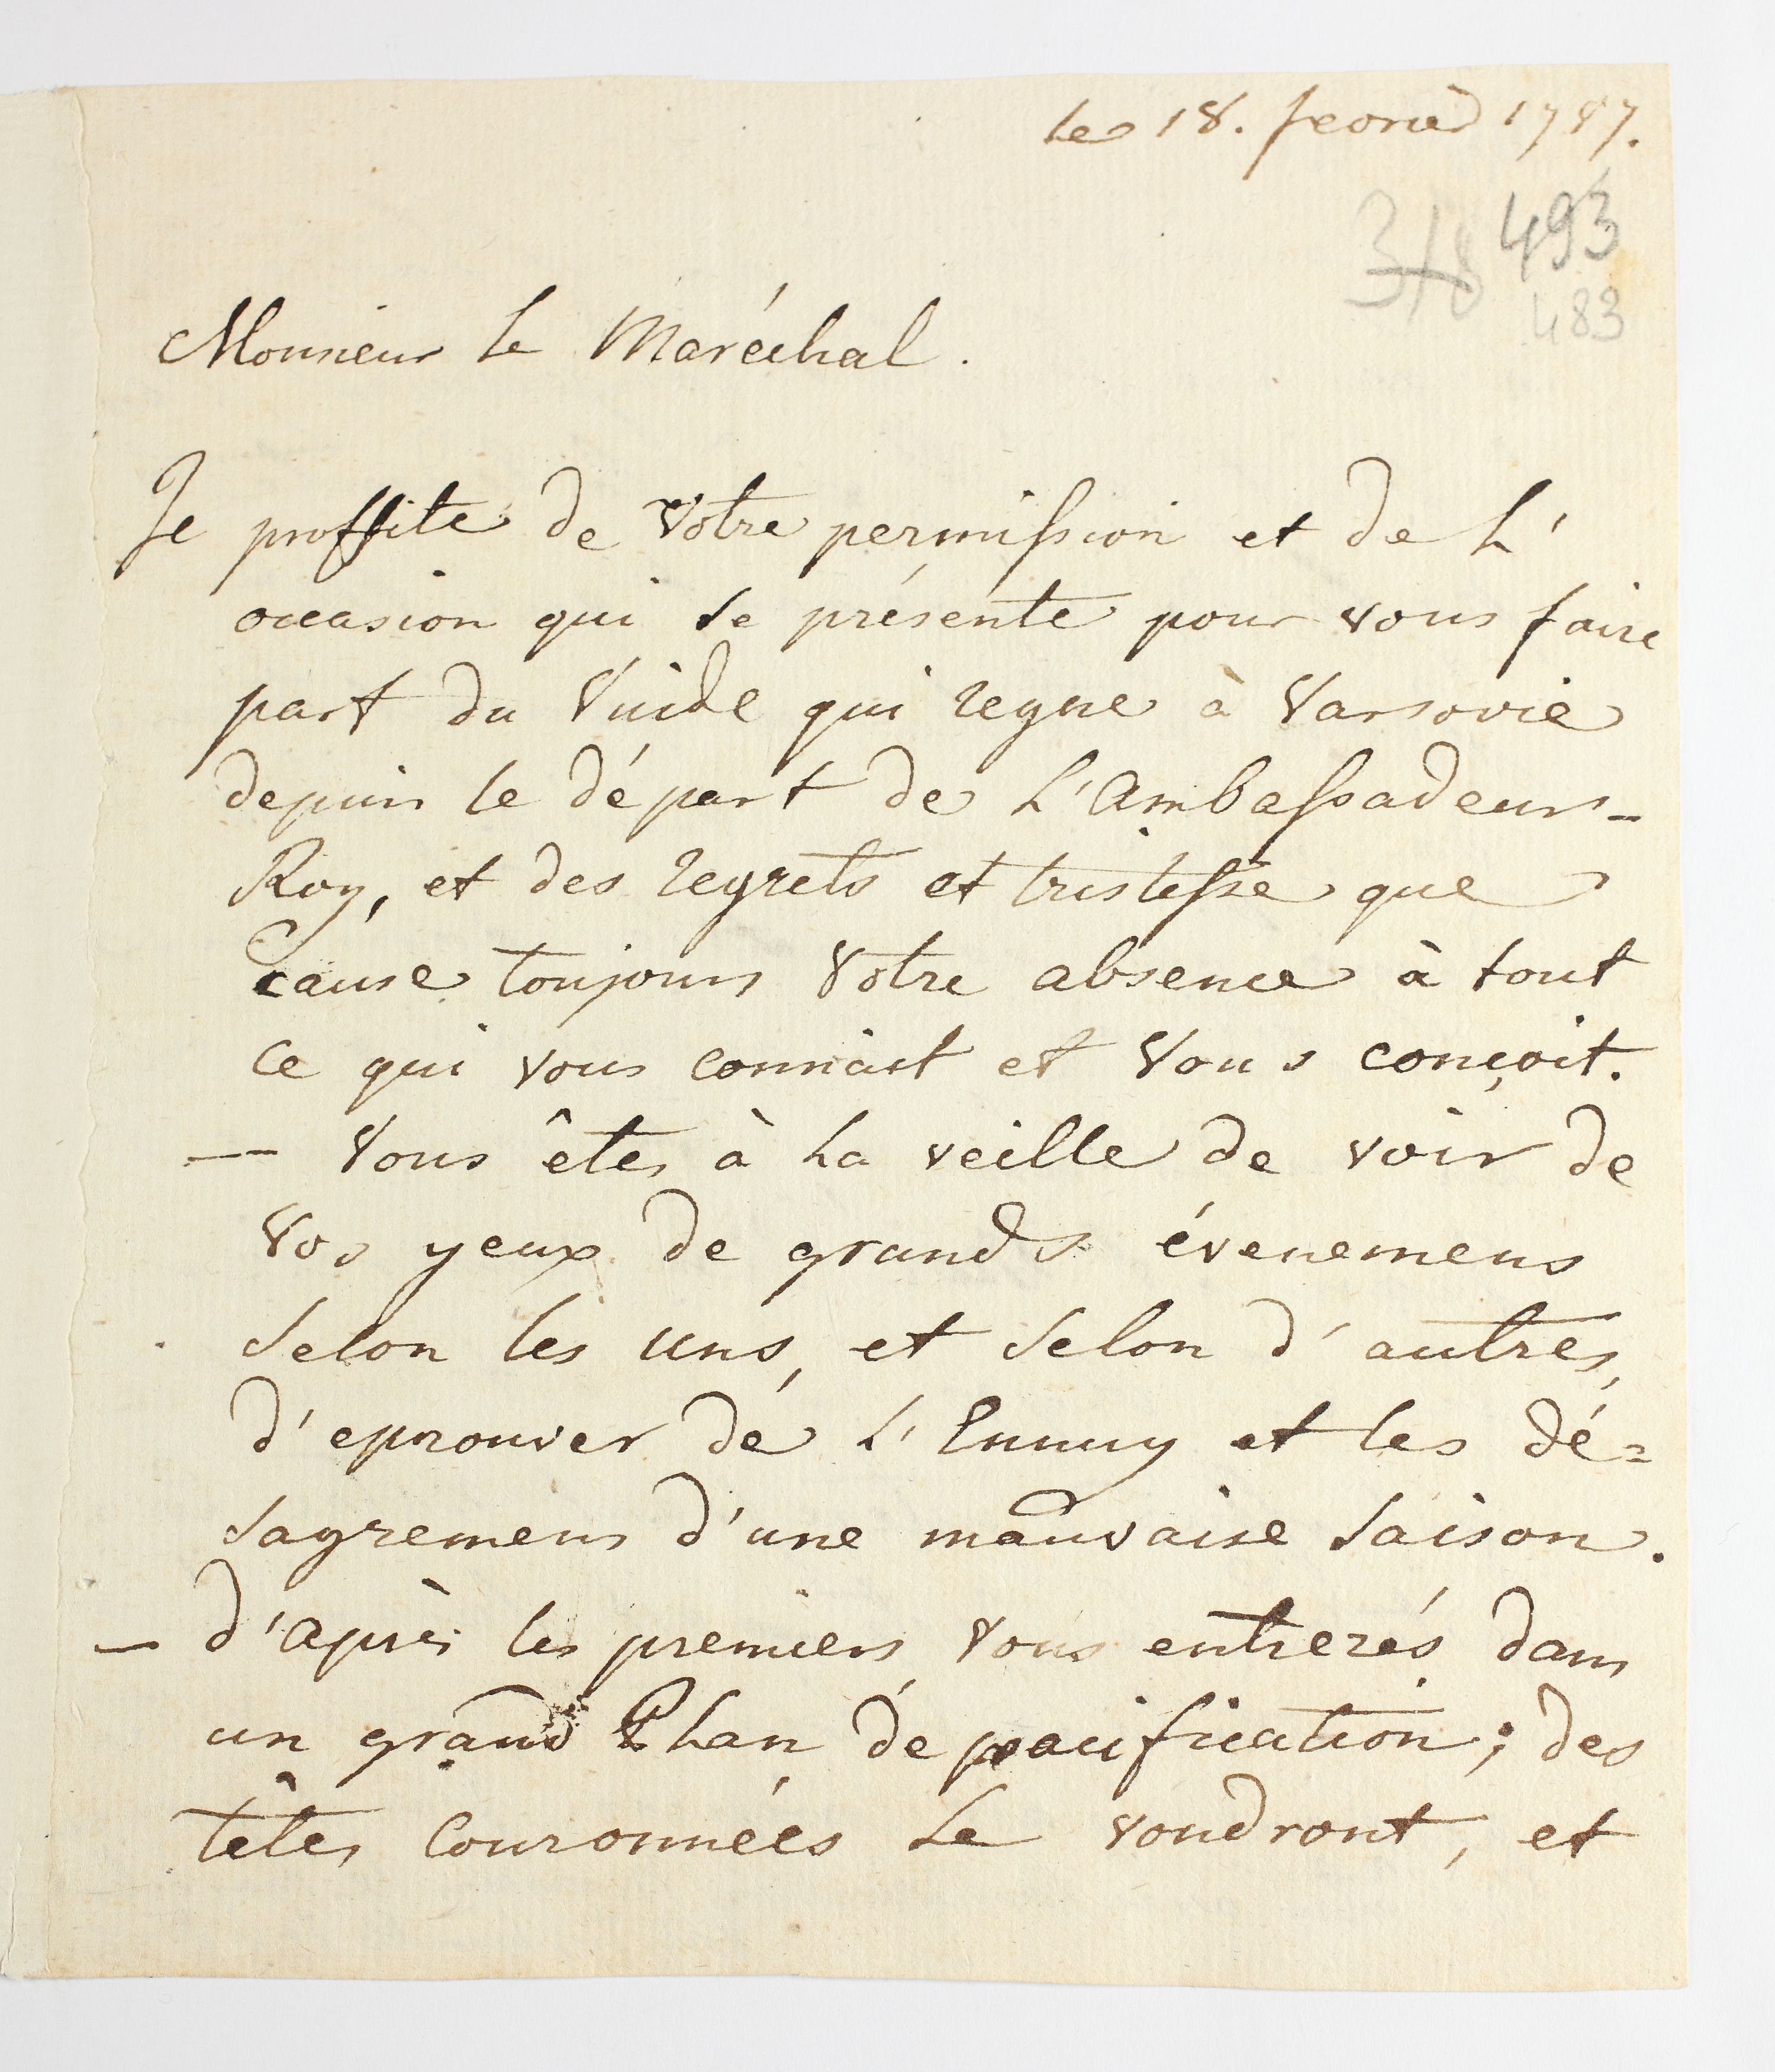 les 18. fevrier 1787.
318 493
483
Monsieur le Maréchal.
Je proffite de Votre permission et de L'
occasion qui se présente pour vous faire
part du Vuide qui regne à Varsovie
depuis le départ de L'Ambassadeur-
Roy, et des regrets et tristesse que
cause toujours Votre absence à tout
ce qui vous connaist et Vous conçoit.
— Vous êtes à La veille de voir de
Vos yeux de grands évenemens
selon les uns, et selon d'autres,
d'eprouver de L'Ennuy et les dé=
sagremens d'une mauvaise saison.
— d'après les premiers, vous entrerés dans
un grand Plan de pacification; des
têtes Couronnées Le voudront, et